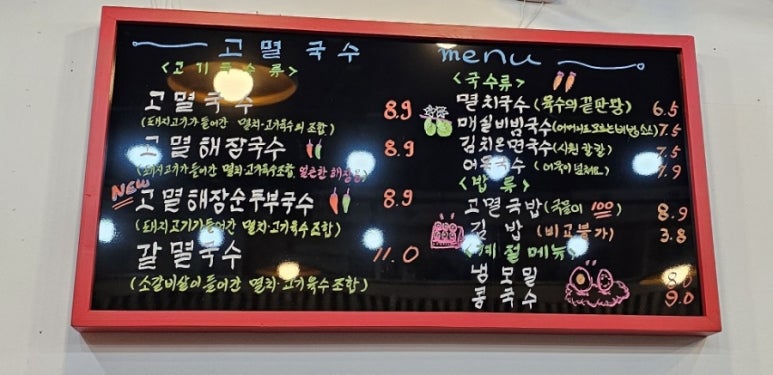 고멸국수
menu
<고기국수류>
고멸국수 8.9
(돼지고기가 들어간 멸치·고기육수의 조합)
고멸해장국수 8.9
(돼지고기가 들어간 멸치·고기육수조합 얼큰한 해장용)
NEW
고멸해장순두부국수 8.9
(돼지고기가 들어간 멸치·고기육수조합)
갈멸국수 11.0
(소갈비살이 들어간 멸치·고기육수조합)
<국수류>
멸치국수 (육수의 끝판왕) 6.5
매실비빔국수 7.5
김치온면국수 (시원 칼칼) 7.5
어묵국수 7.9
<밥류>
고멸국밥 (국물이 100) 8.9
김밥 (비교불가) 3.8
<계절메뉴>
냉모밀 8.0
콩국수 9.0